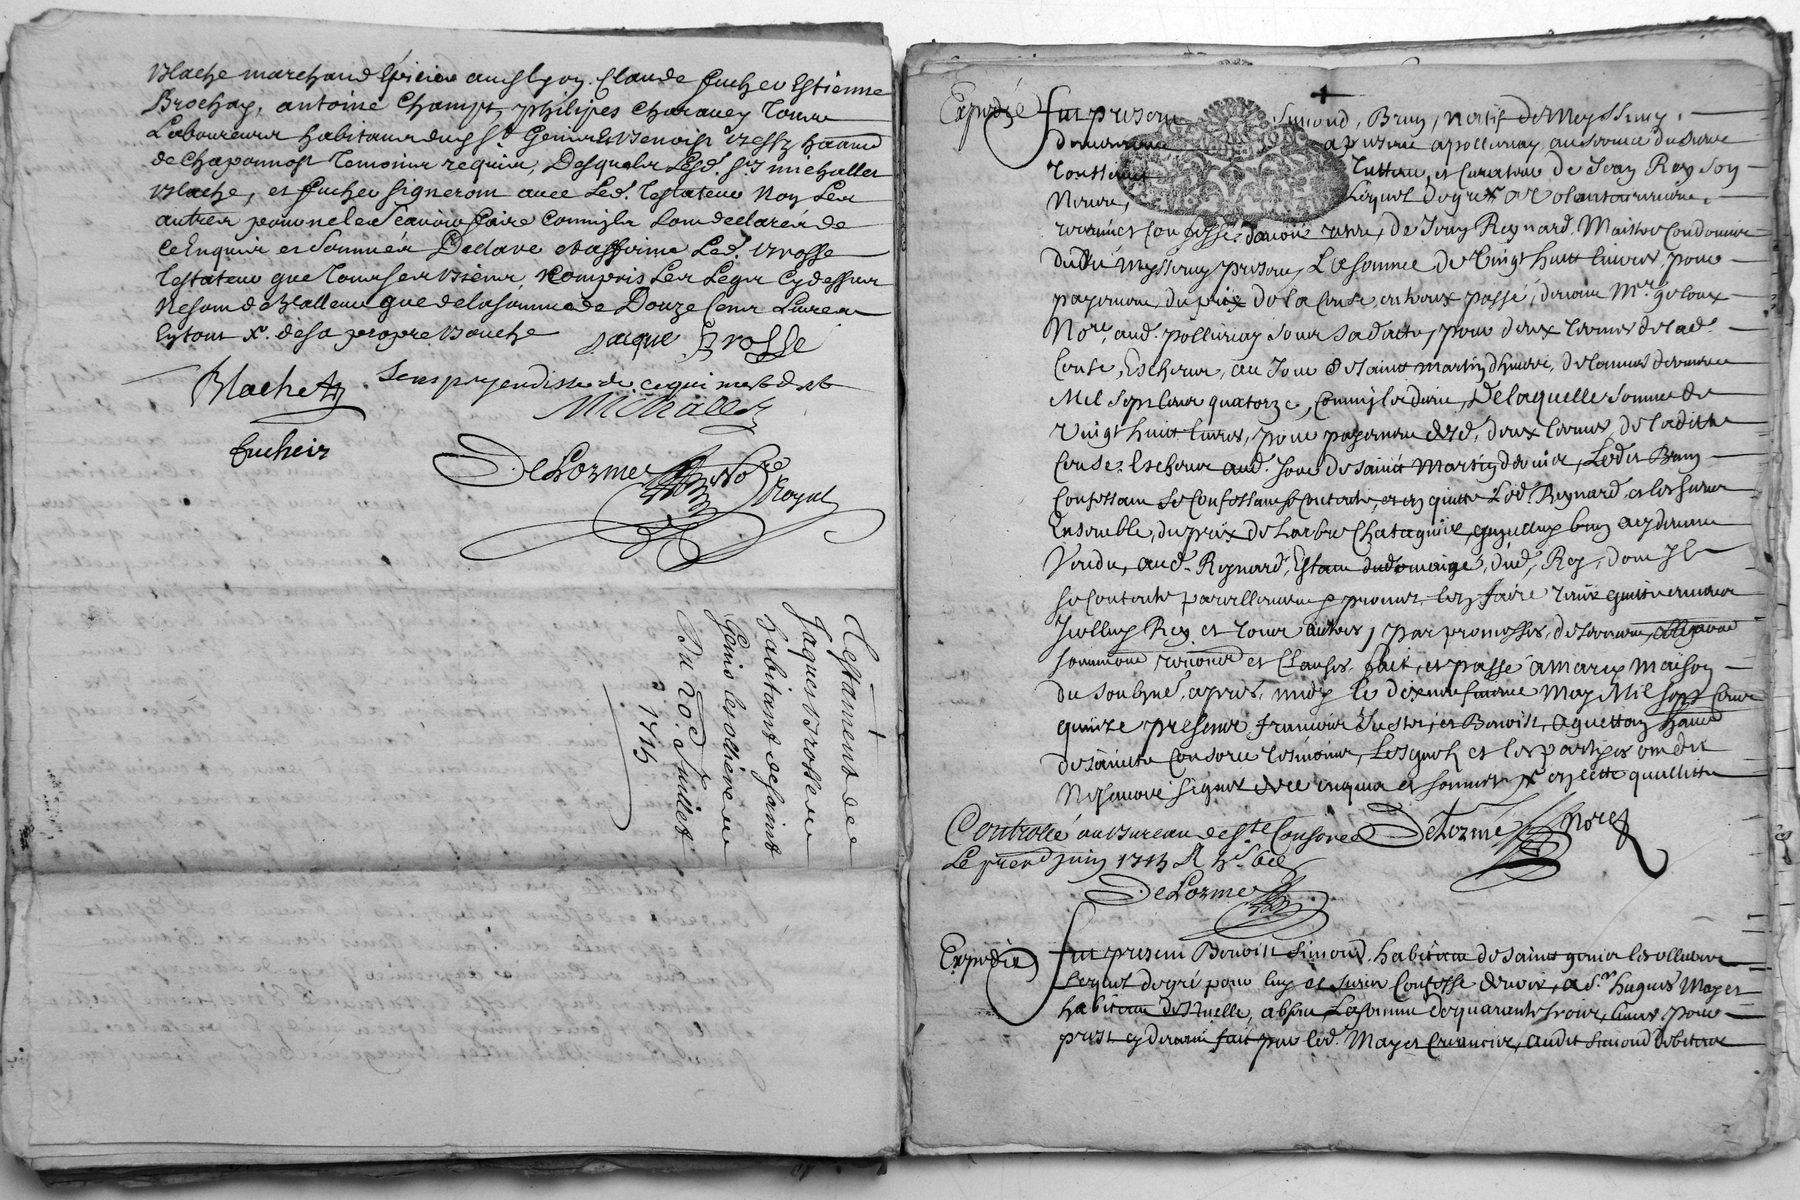 Blache marchand Epicier audit lyon Claude fucher Estienne
Brochay, antoine Champt, philipes Charavey Tous
Laboureurs habitans dud St Genis Et Benoist
de Chaponnost Temoins requis, Desquels Lesd. Srs michallet
Blache, et fucher signeront avec Led. Testateur Non Les
autres pour ne le scavoir faire Comm'ils Lont declarés de
Ce Enquis et sommés Declare et affirme Led. Brosse
Testateur que Tous ses Biens, Compris Les Legs Cy dessus
Ne sont de Valleur que de la somme de Douze Cens Livres
Et tout de sa propre Bouche
Jacque Brosse
Blache
sens prejendisse de ce qui mest deub
Michallet
fucheir
DeLorme No.re Royal
Testament de
Jaques Brosse
habitant de saint
Genis les ollieres
Du 20.e Juillet
1715
Expedié fut present Simond, Brun, natif de Messimy,
demeurant a present a pollionay au service du sieur
Tutteur, et Curateur de Jean Rey son
Neveu, Lequel de gré et Volontairement
Confesse davoir receu, de Jean Reynard Maistre Cordonnier
dudit Messimy present, La somme de Vingt huit livres, pour
payement du prix de la Cense, entreux passé, devant Mr.
No.re aud. pollionay sous sa datte, pour deux termes de lad.
Cense, Escheus, au Jour de saint martin dhiver, de lannée derniere
Mil Sept Cent quatorze, comm'ils dient, De laquelle somme de
Vingt huit livres, pour payement desd. deux termes, de la ditte
Cense, Escheus aud. Jour de saint Martin dernier, Ledit Brun
Confessant se Contente, et en quitte Led. Reynard, et les siens
Ensemble, du prix de Larbre Chataignier, quicelluy brun a cy devant
Vendu, aud. Reynard, Estant du domaine, dud. Rey, dont Il
se Contente pareillement promet len faire tenir quitte envers
Icelluy Rey et tous autres, par promesses, de serment, obligation
soumissions renonciations et Clauses. fait, et passé a marcy maison
du soubsné, apres midy le dixieme may Mil sept Cent
quinze presens francois et Benoist habitans
de sainte Consorce tesmoins, Lesquels et les partyes ont dit
Ne scavoir signer de ce enquis et sommés
Controllé au Bureau de Ste Consorce DeLorme No.re
Le juin 1715
DeLorme
Expedié fut present Benoist Simond, habitant de saint genis les ollieres
Lequel de gré pour luy et siens Confesse devoir, a Sr. hugues Mayet
habitant absent La somme de quarante trois livres pour
prest cy devant fait par led. Mayet Creancier, audit Simond debiteur